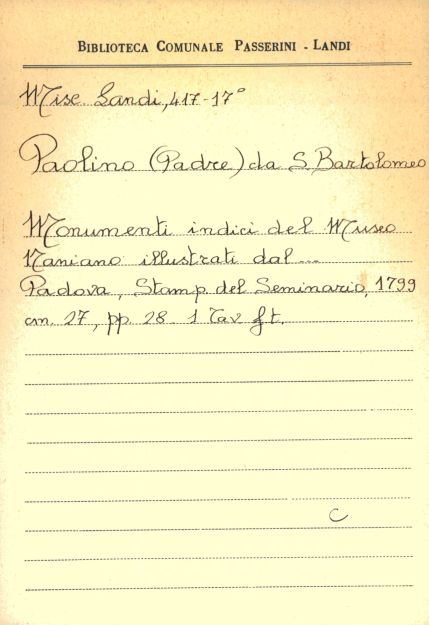 BIBLIOTECA COMUNALE PASSERINI - LANDI
Misc. Landi, 417-17°
Paolino (Padre) da S. Bartolomeo
Monumenti indici del Museo
Naniano illustrati dal...
Padova, Stamp. del Seminario, 1799
cm. 27, pp. 28. 1 Tav f.t.
C